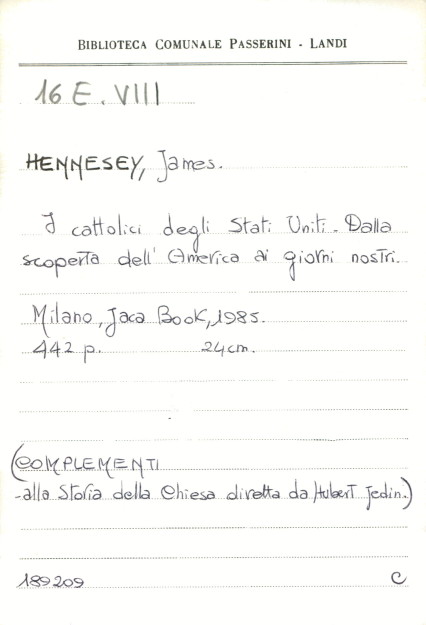 BIBLIOTECA COMUNALE PASSERINI - LANDI
16 E. VIII
HENNESEY, James.
I cattolici degli Stati Uniti. Dalla
scoperta dell'America ai giorni nostri.
Milano, Jaca Book, 1985.
442 p. 24cm.
(COMPLEMENTI
-alla Storia della Chiesa diretta da Hubert Jedin.)
189209 C